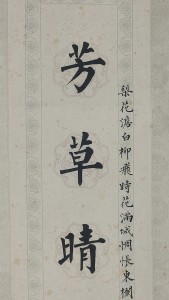 梨花澹白柳飛時花滿城惆悵東欄
芳草晴